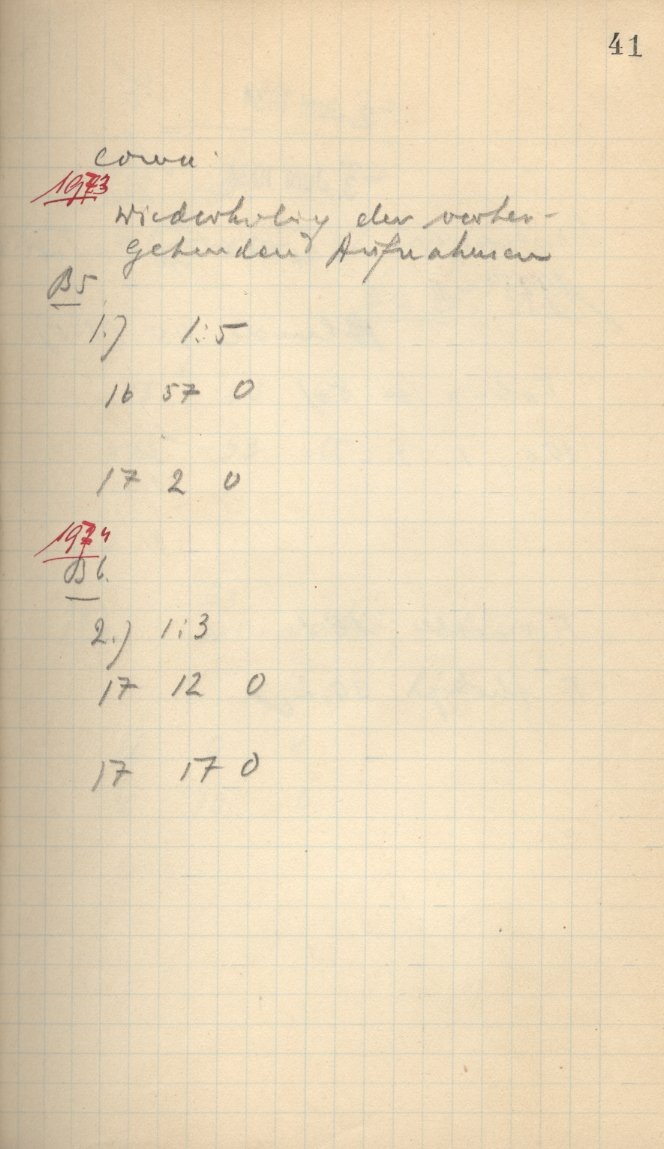 41
1973
Wiederholung der vorher-
gehenden Aufnahmen
B5
1.) 1:5
16 57 0
17 2 0
1974
B6.
2.) 1:3
17 12 0
17 17 0